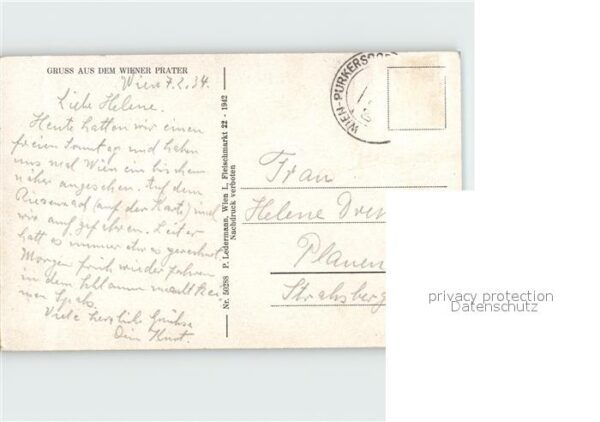 GRUSS AUS DEM WIENER PRATER
Wien 7.2.34.
Liebe Helene.
Heute hatten wir einen
freien Sonntag und haben
uns mal Wien ein bischen
näher angesehen. Auf dem
Riesenrad (auf der Karte) sind
wir auch gefahren. Leider
hatt es immer etwas geregnet.
Morgen früh wieder fahren
in dem macht kei
nen Spaß.
Viele herzliche Grüße
Dein Kurt.
Nr. 50288 P. Ledermann, Wien I., Fleischmarkt 22 - 1942
Nachdruck verboten
WIEN-PURKERSDORF
Frau
Helene
Plauen
Strahsberg
privacy protection
Datenschutz